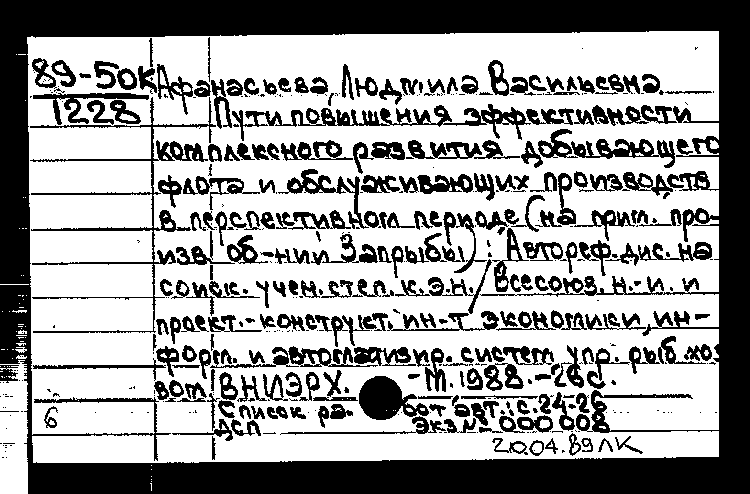 89-50К Афанасьева, Людмила Васильевна.
1228 Пути повышения эффективности
комплексного развития добывающего
флота и обслуживающих производств
в перспективном периоде (на прим. про-
изв. об-ний Запрыбы) : Автореф. дис. на
соиск. учен. степ. к.э.н. / Всесоюз. н.-и. и
проект.-конструкт. ин-т экономики, ин-
форм. и автоматизир. систем упр. рыб. хоз
вом. ВНИЭРХ. -М. 1988. -26 с.
6 Список ра- бот авт.: с. 24-26
ДСП Экз № 000 008
20.04.89 ЛК